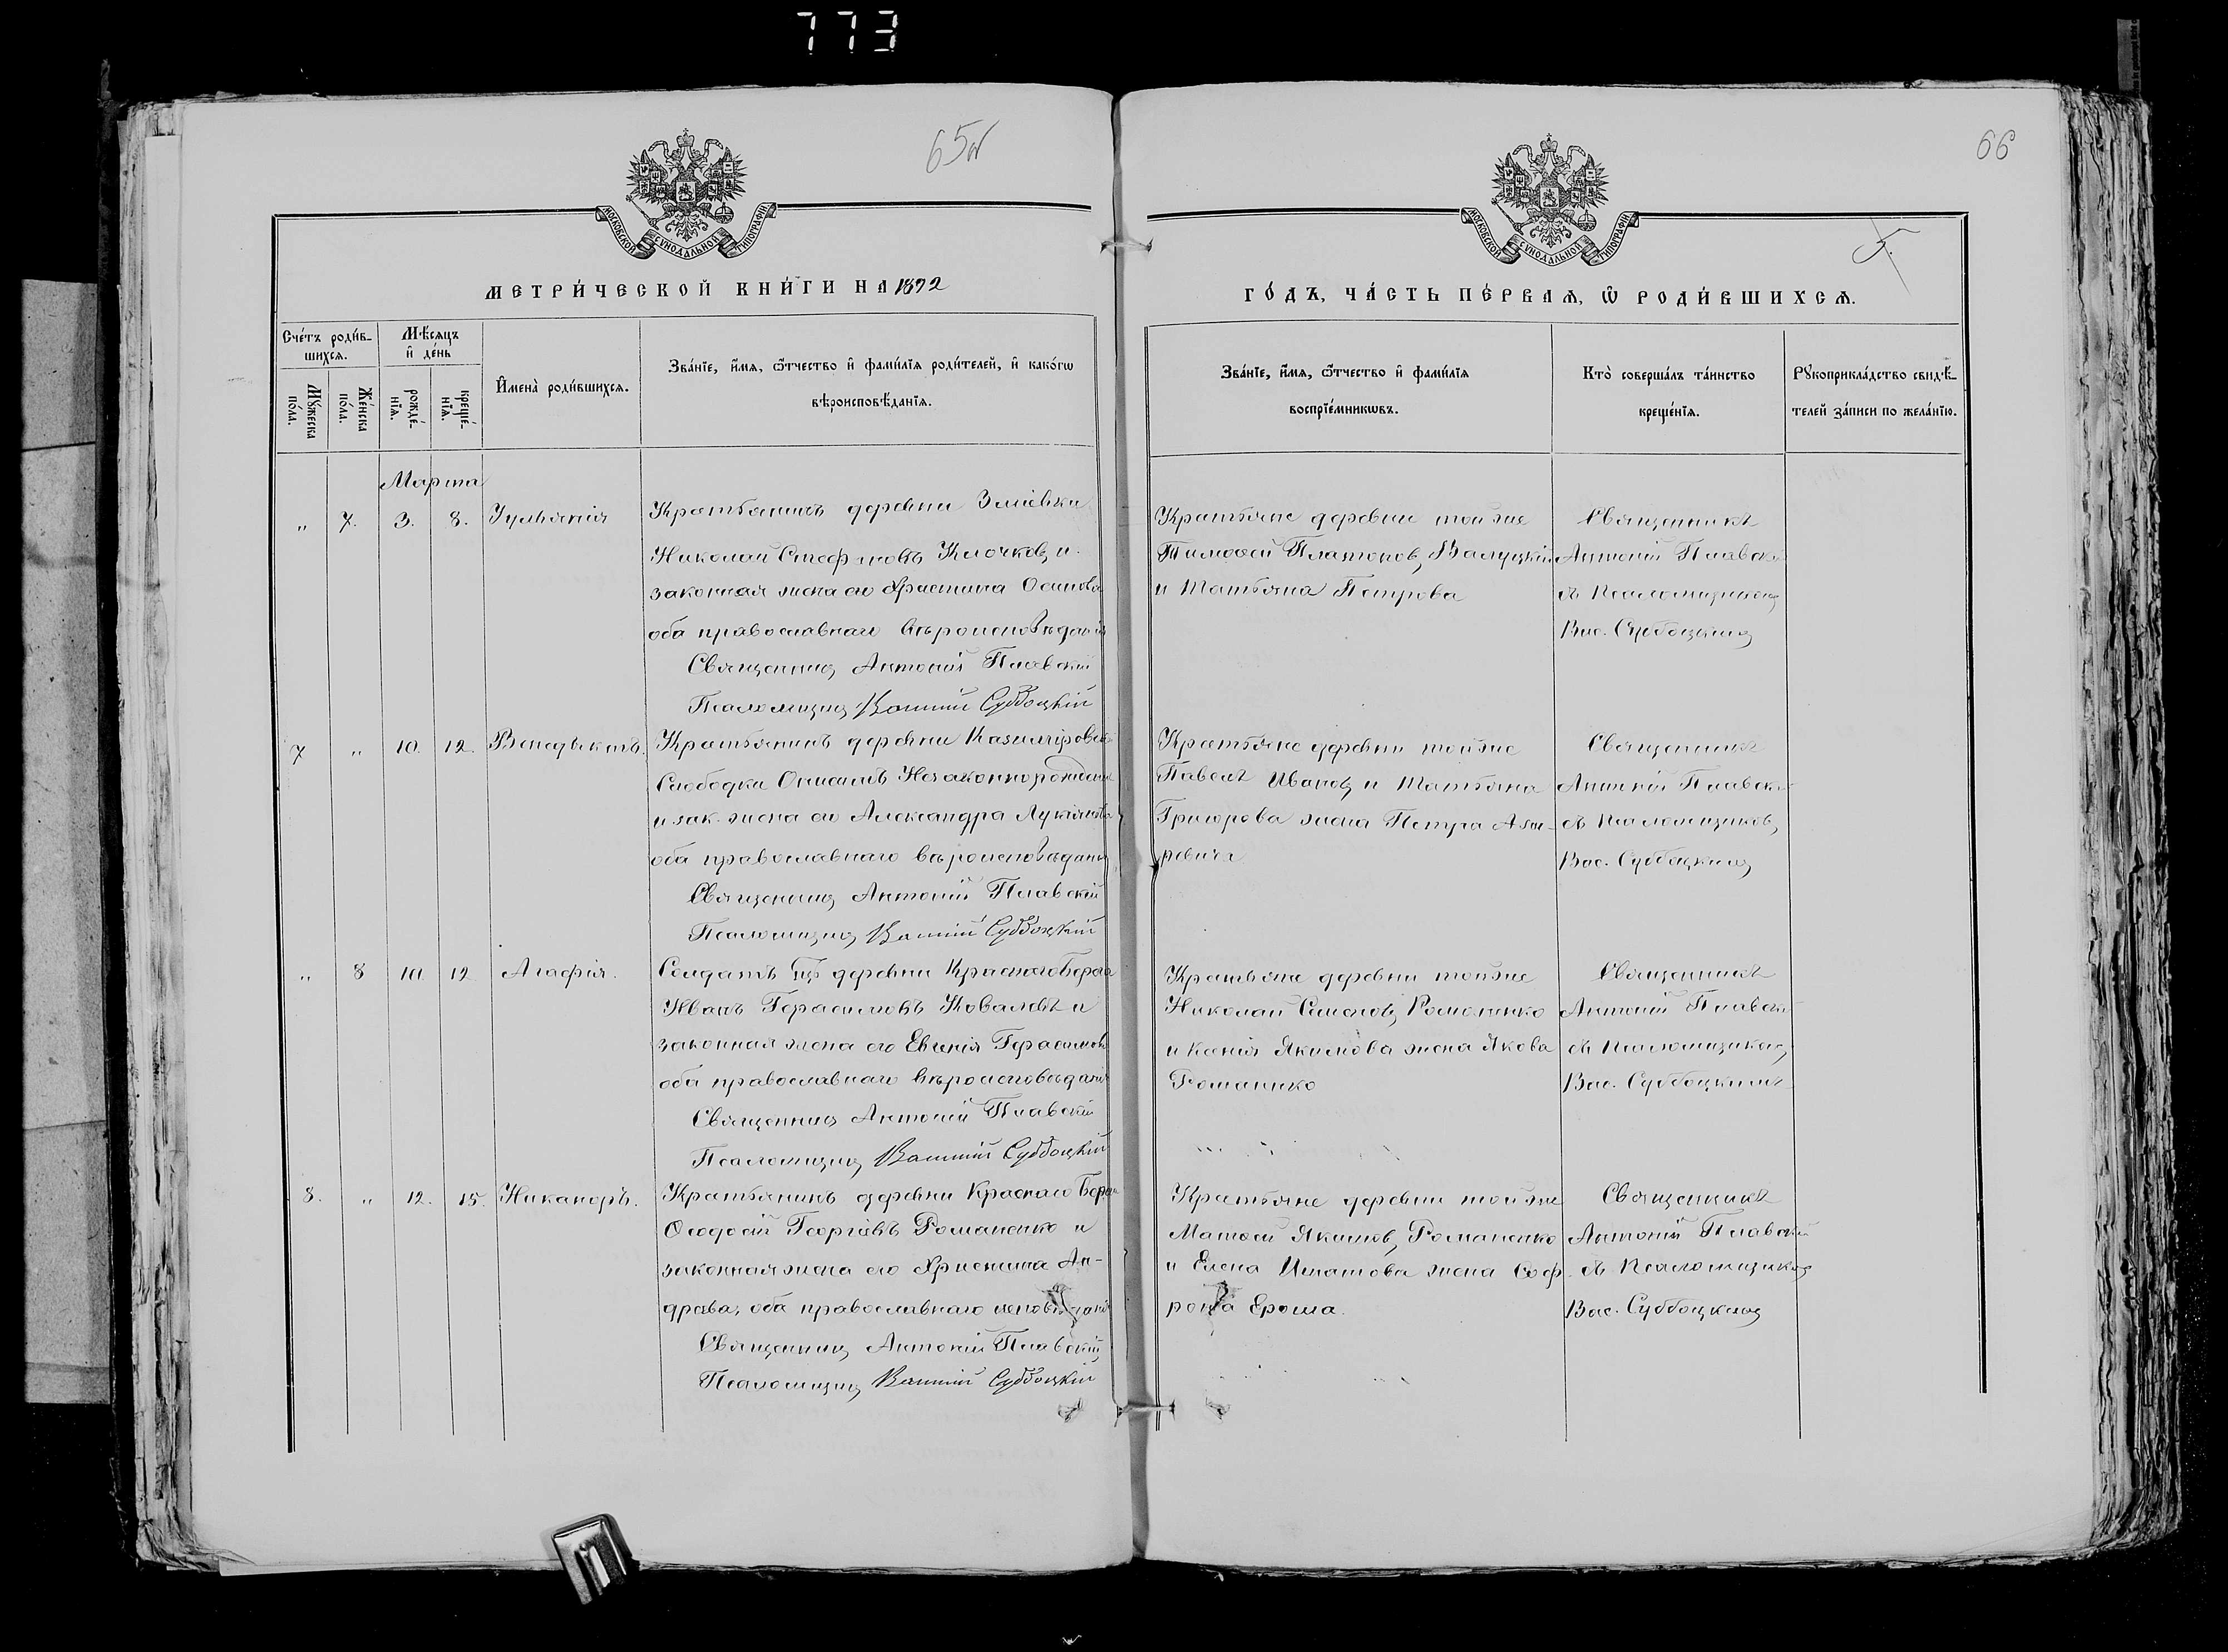 773
65об
66
5.
МОСКОВСКОЙ СѴНОДАЛЬНОЙ ТИПОГРАФІИ
МОСКОВСКОЙ СѴНОДАЛЬНОЙ ТИПОГРАФІИ
МЕТРИ́ЧЕСКОЙ КНИ́ГИ НА 1892
ГО́ДЪ, ЧА́СТЬ ПЕ́РВАѦ, Ѡ РОДИ́ВШИХСѦ.
Сче́тъ роди́в-
шихсѧ.
Мѣ́сѧцъ
и҆ де́нь
Мꙋ́жеска
по́ла.
Же́нска
по́ла.
рожде́-
нїѧ.
креще́-
нїѧ.
И҆мена̀ роди́вшихсѧ.
Зва́нїе, и҆́мѧ, ѻ҆́тчество и҆ фами́лїѧ роди́телей, и҆ како́гѡ
вѣроисповѣ́данїѧ.
Зва́нїе, и҆́мѧ, ѻ҆́тчество и҆ фами́лїѧ
воспрїе́мникѡвъ.
Кто̀ соверша́лъ та́инство
креще́нїѧ.
Рꙋкоприкла́дство свидѣ́-
телей за́писи по жела́нїю.
Марта
„ 7. 3. 8. Іуліанія
Крестьянинъ деревни Зміевки
Николай Стефановъ Клочковъ и
законная жена его Христина Осипова
оба православнаго вѣроисповѣданія
Священникъ Антоній Плавскій
Псаломщикъ Василій Субботскій
Крестьяне деревни той же
Тимоѳей Платоновъ Валуцкій
и Татьяна Петрова
Священникъ
Антоній Плавскій
съ Псаломщикомъ
Вас. Субботскимъ
7 „ 10. 12. Венедиктъ.
Крестьянинъ деревни Казимировской
Слободки Онисимъ Незаконнорожденный
и зак. жена его Александра Лукіянова
оба православнаго вѣроисповѣданія
Священникъ Антоній Плавскій
Псаломщикъ Василій Субботскій
Крестьяне деревни той же
Павелъ Ивановъ и Татьяна
Григорова жена Петра Аза-
ревича
Священникъ
Антоній Плавскій
съ Псаломщикомъ
Вас. Субботскимъ
„ 8 10 12 Агафія.
Солдатъ изъ деревни Краснаго Берега
Иванъ Герасимовъ Ковалевъ и
законная жена его Евгенія Герасимова
оба православнаго вѣроисповѣданія
Священникъ Антоній Плавскій
Псаломщикъ Василій Субботскій
Крестьяне деревни той же
Николай Семеновъ Романенко
и Ксенія Якимова жена Якова
Романенко
Священникъ
Антоній Плавскій
съ Псаломщикомъ
Вас. Субботскимъ
8. „ 12. 15. Никаноръ.
Крестьянинъ деревни Краснаго Берега
Ѳеодосій Георгіевъ Романенко и
законная жена его Христина Ан-
дреева, оба православнаго исповѣданія
Священникъ Антоній Плавскій
Псаломщикъ Василій Субботскій
Крестьяне деревни той же
Матѳей Якимовъ Романенко
и Елена Игнатова жена Соф-
рона Ероша.
Священникъ
Антоній Плавскій
съ Псаломщикомъ
Вас. Субботскимъ